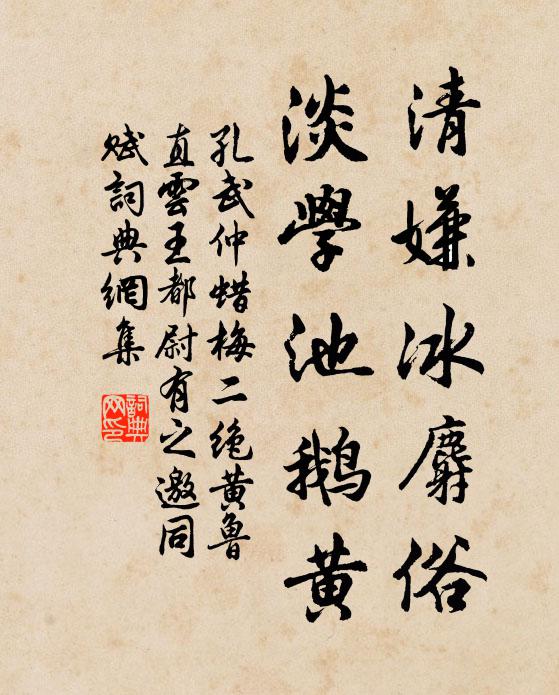 清嫌冰麝俗
淡學池鵝黃
孔武仲蜡梅二絶黃魯
直雲王都尉有之邀同
賦詞典網集
詞典網印